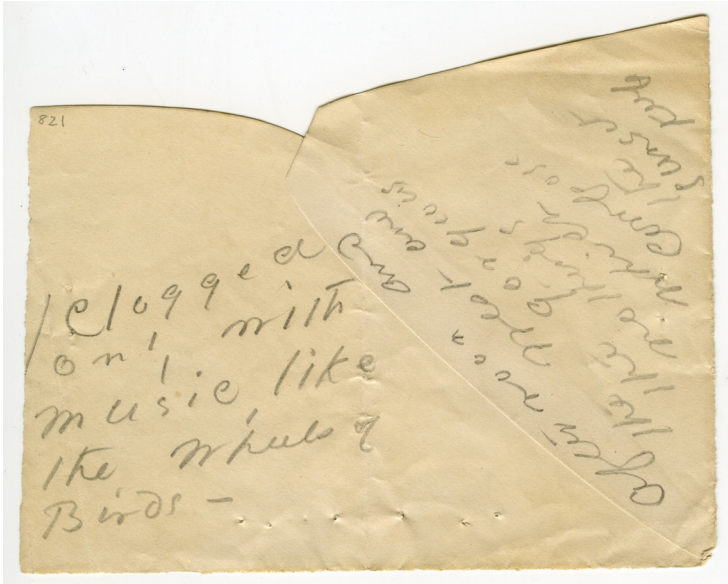 821
Clogged
only with
music, like
the Wheels of
Birds –
afternoon and
the West and
the gorgeous
nothings
which
compose
the
sunset
keep